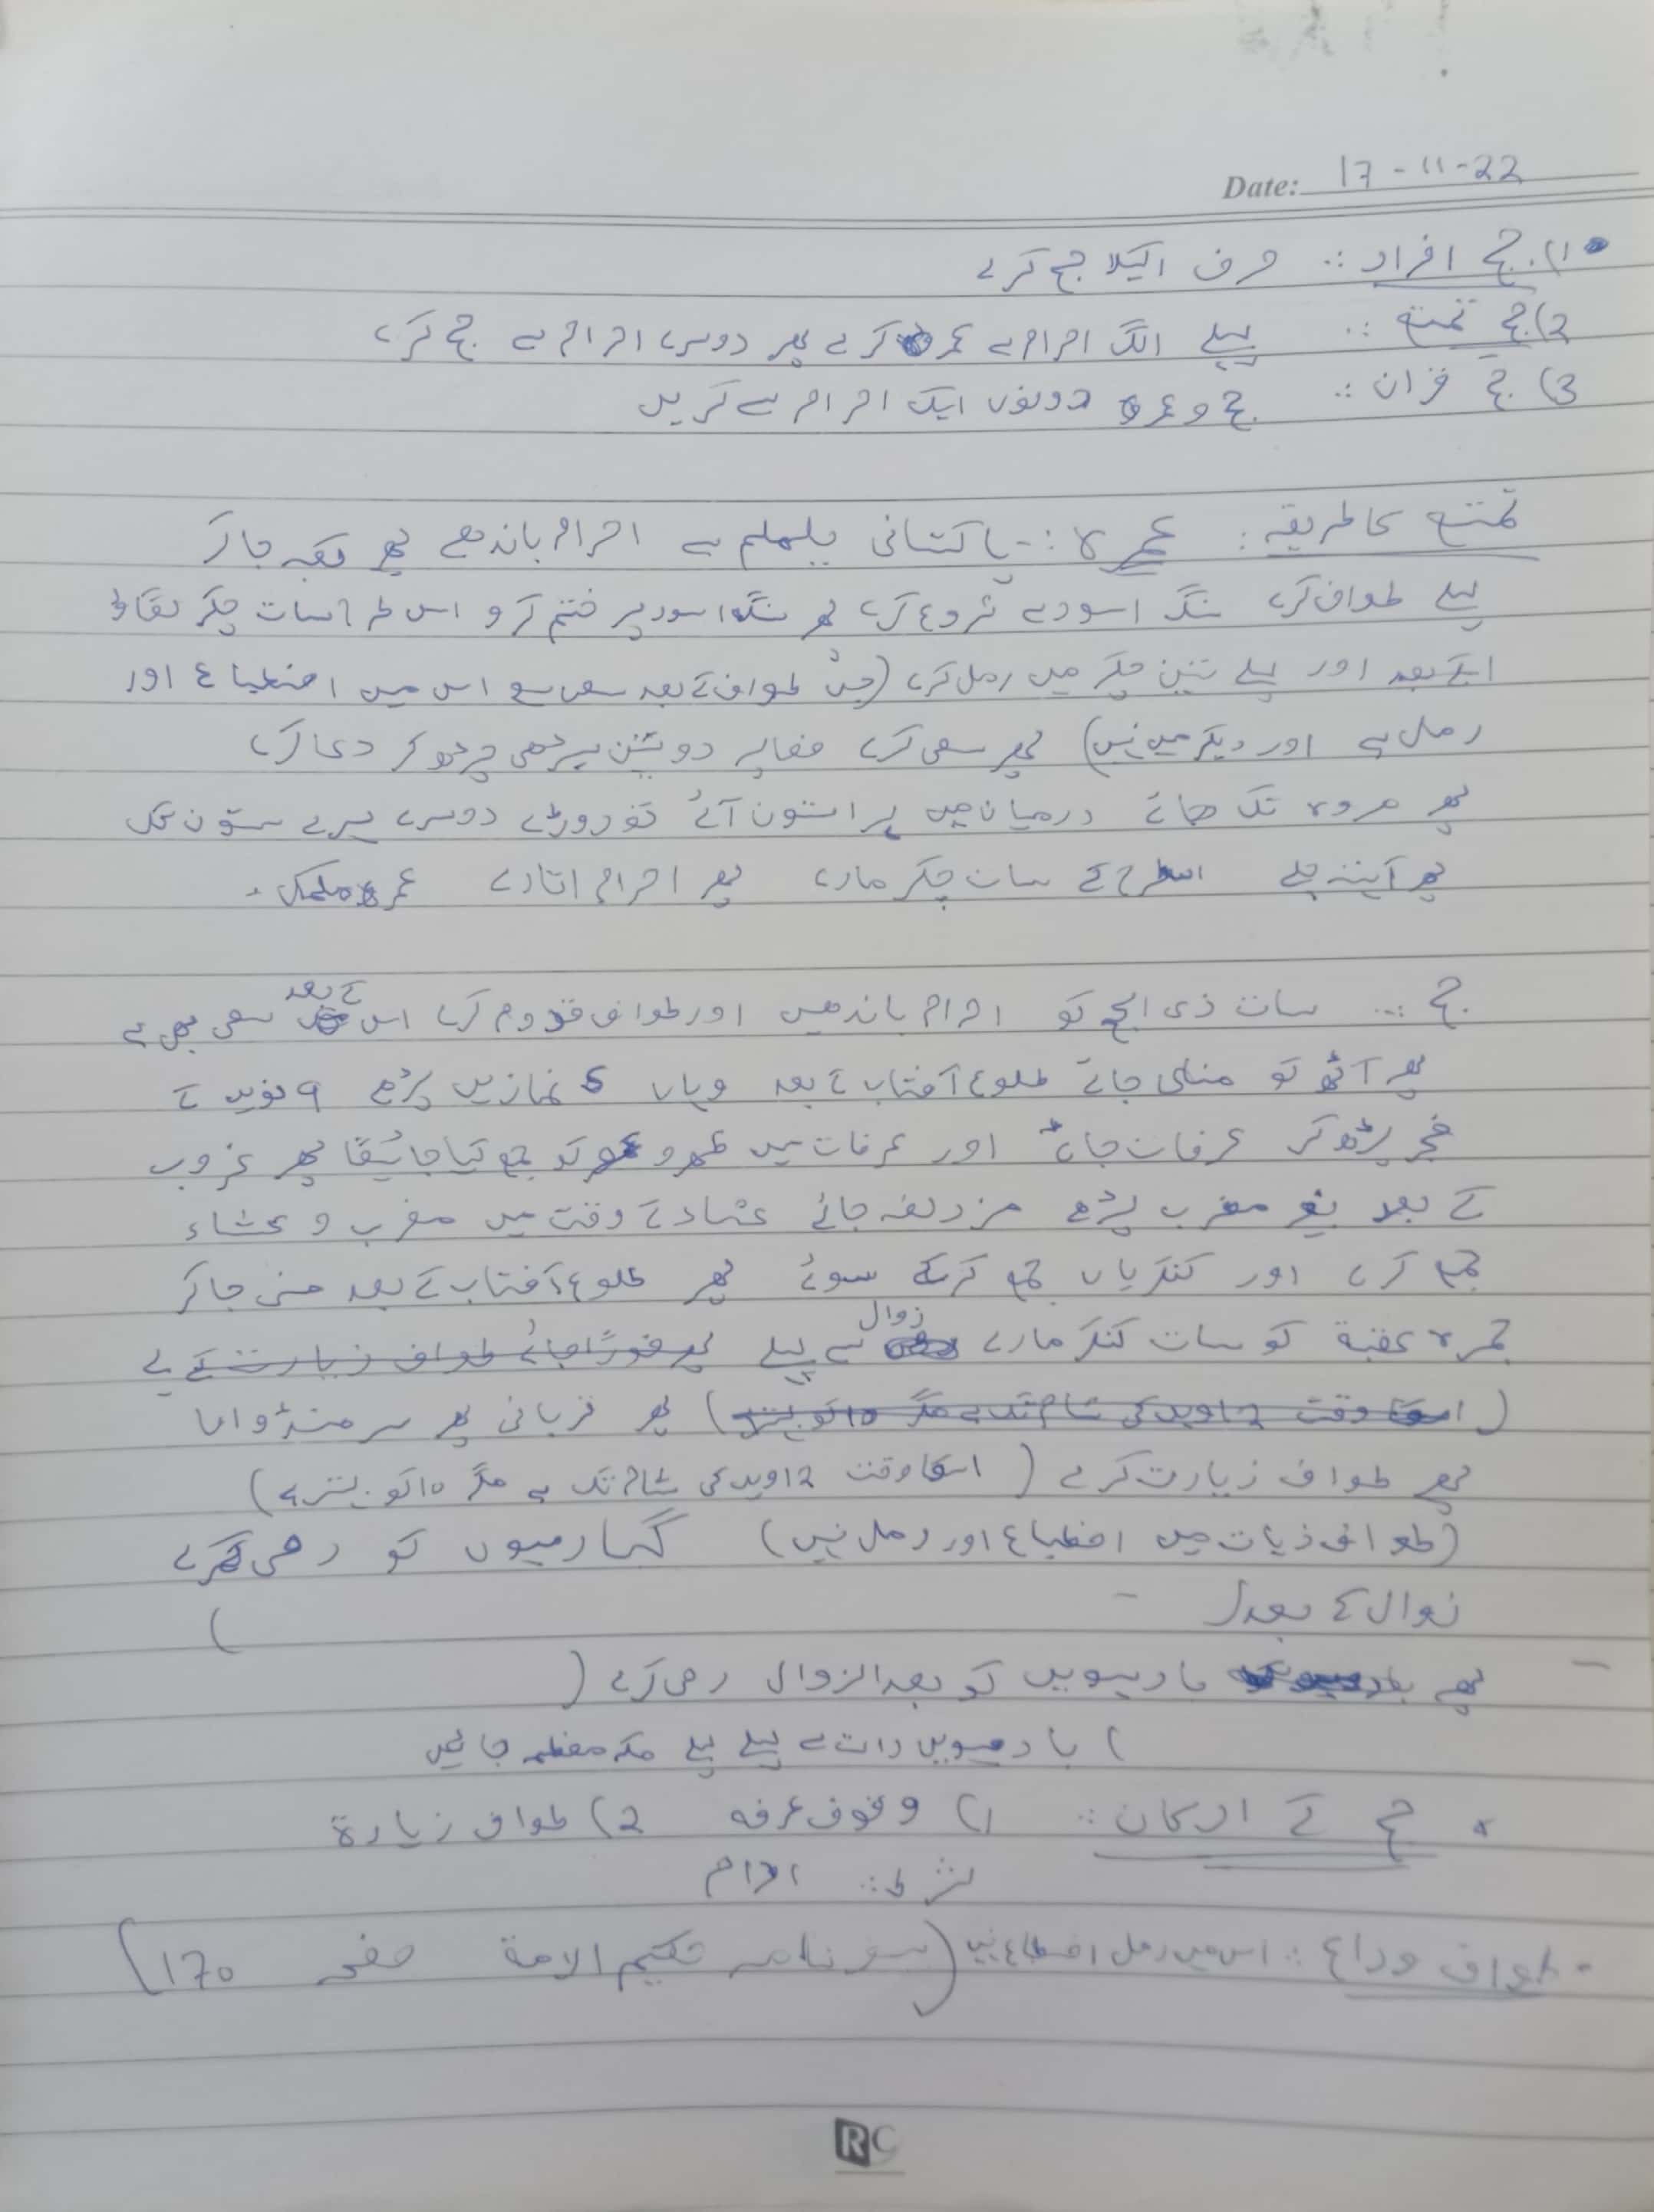 Date: 17-11-22
1) حج افراد :. صرف اکیلا حج کرے
2) حج تمتع :. پہلے الگ احرام سے عمرہ کرے پھر دوسرے احرام سے حج کرے
3) حج قران :. حج و عمرہ دونوں ایک احرام سے کریں
تمتع کا طریقہ : عمرہ :- پاکستانی یلملم سے احرام باندھے پھر مکہ جا کر
پہلے طواف کرے سنگ اسود سے شروع کرے پھر سنگ اسود پر ختم کرو اس طرح سات چکر لگائے
اسکے بعد اور پہلے تین چکر میں رمل کرے (جس طواف کے بعد سعی ہے اس میں اضطباع اور
رمل ہے اور دیگر میں نہیں) پھر سعی کرے صفا پر دو تین سیڑھی چڑھ کر دعا کرے
پھر مروہ تک جائے درمیان میں ہرا ستون آئے تو دوڑے دوسرے ہرے ستون تک
پھر آہستہ چلے اسطرح کے سات چکر مارے پھر احرام اتارے عمرہ مکمل ۔
حج :. سات ذی الحج کو احرام باندھیں اور طواف قدوم کرے اس کے بعد سعی بھی ہے
پھر آٹھ کو منیٰ جائے طلوع آفتاب کے بعد وہاں 5 نمازیں پڑھے 9 نویں کے
فجر پڑھ کر عرفات جائے اور عرفات میں ظہر و عصر کو جمع کیا جائیگا پھر غروب
کے بعد بغیر مغرب پڑھے مزدلفہ جائے عشاء کے وقت میں مغرب و عشاء
جمع کرے اور کنکریاں جمع کر کے سوئے پھر طلوع آفتاب کے بعد منی جا کر
جمرہ عقبة کو سات کنکر مارے زوال سے پہلے پھر فوراً جائے طواف زیارت کے لیے
(اسکا وقت 12ویں کی شام تک ہے مگر 10 کو بہتر) پھر قربانی پھر سر منڈوانا
پھر طواف زیارت کرے (اسکا وقت 12ویں کی شام تک ہے مگر 10 کو بہتر ہے)
(طواف زیات میں اضطباع اور رمل نہیں) گیارہیوں کو رمی کرے
زوال کے بعد (
پھر بارہیویں کو بعد الزوال رمی کرے (
) بارہیویں رات سے پہلے پہلے مکہ معظمہ جائیں
* حج کے ارکان :. 1) وقوف عرفہ 2) طواف زیارة
شرط :. احرام
• طواف وداع :. اس میں رمل اضطباع نہیں (سفر نامہ حکیم الامة صفحہ 170)
RC